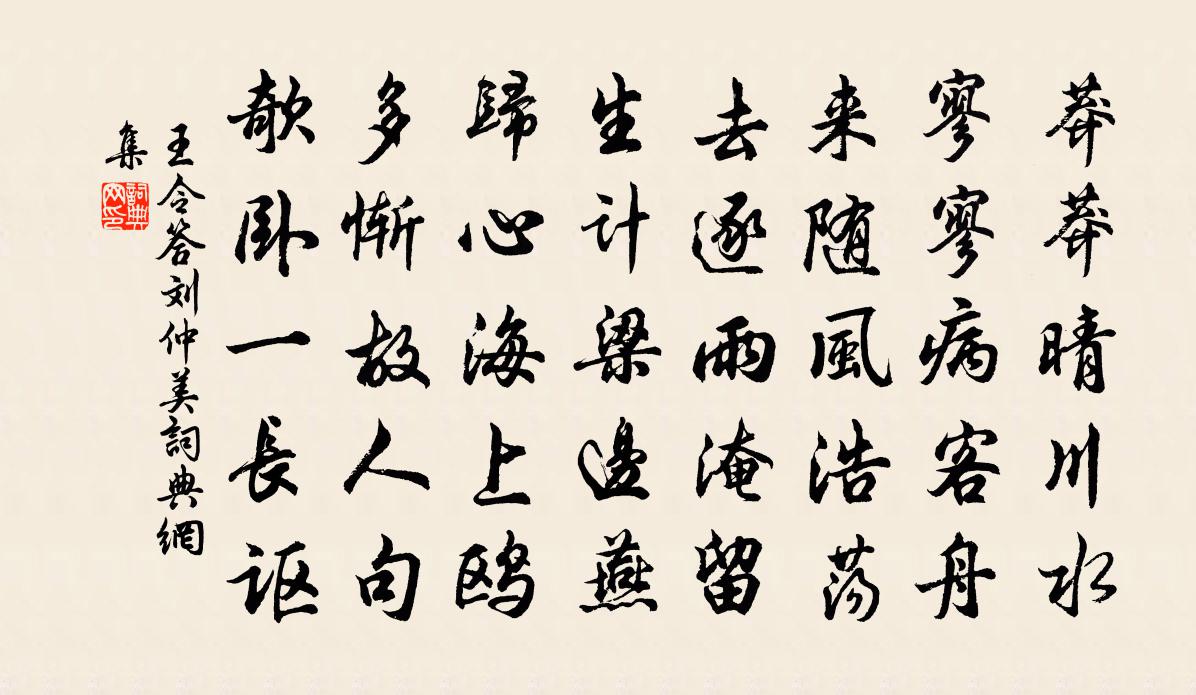 莽莽晴川水
寥寥病客舟
来随風浩荡
去逐雨淹留
生计梁邊燕
歸心海上鸥
多惭故人句
欹卧一長讴
王令答刘仲美詞典網
集
詞典网印